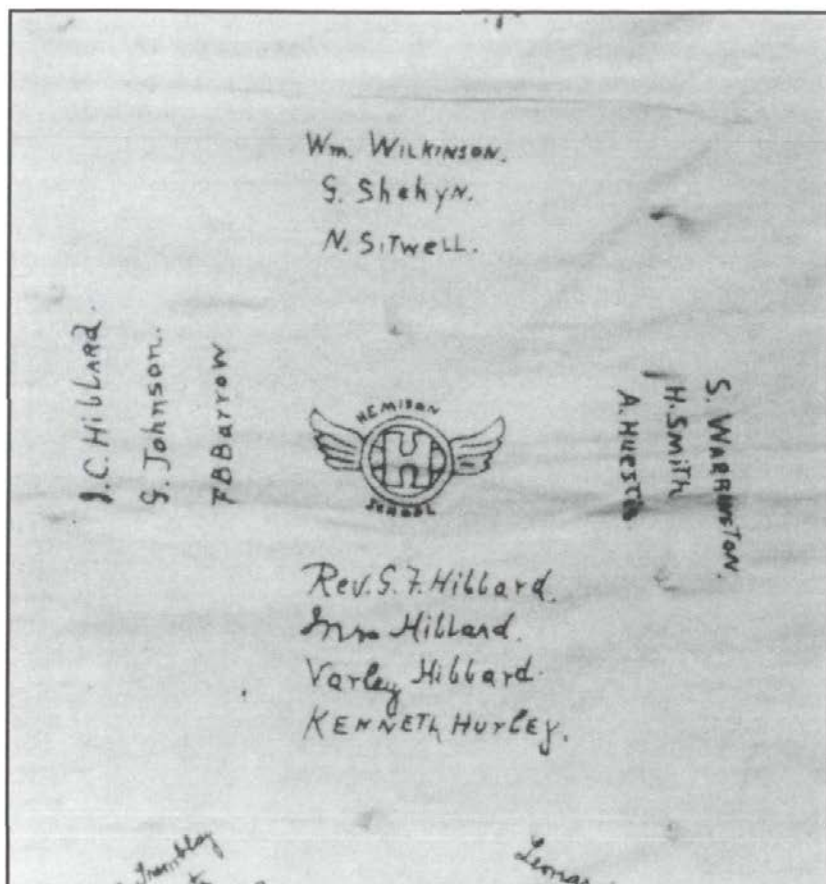 Wm. WILKINSON.
G. Shehyn.
N. SITWELL.
J. C. HIBBARD.
G. Johnson.
F B Barrow
HEMISON
H
SCHOOL
A. HUESTIS
H. SMITH
S. WARRINGTON.
Rev. G. F. Hibbard.
Mrs Hibbard.
Varley Hibbard.
KENNETH HURLEY.
Trembley